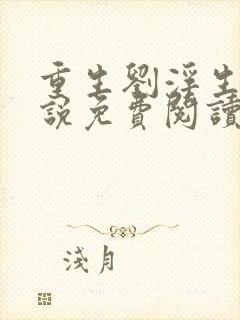 重生劉淫生
說免費閱讀
淺月